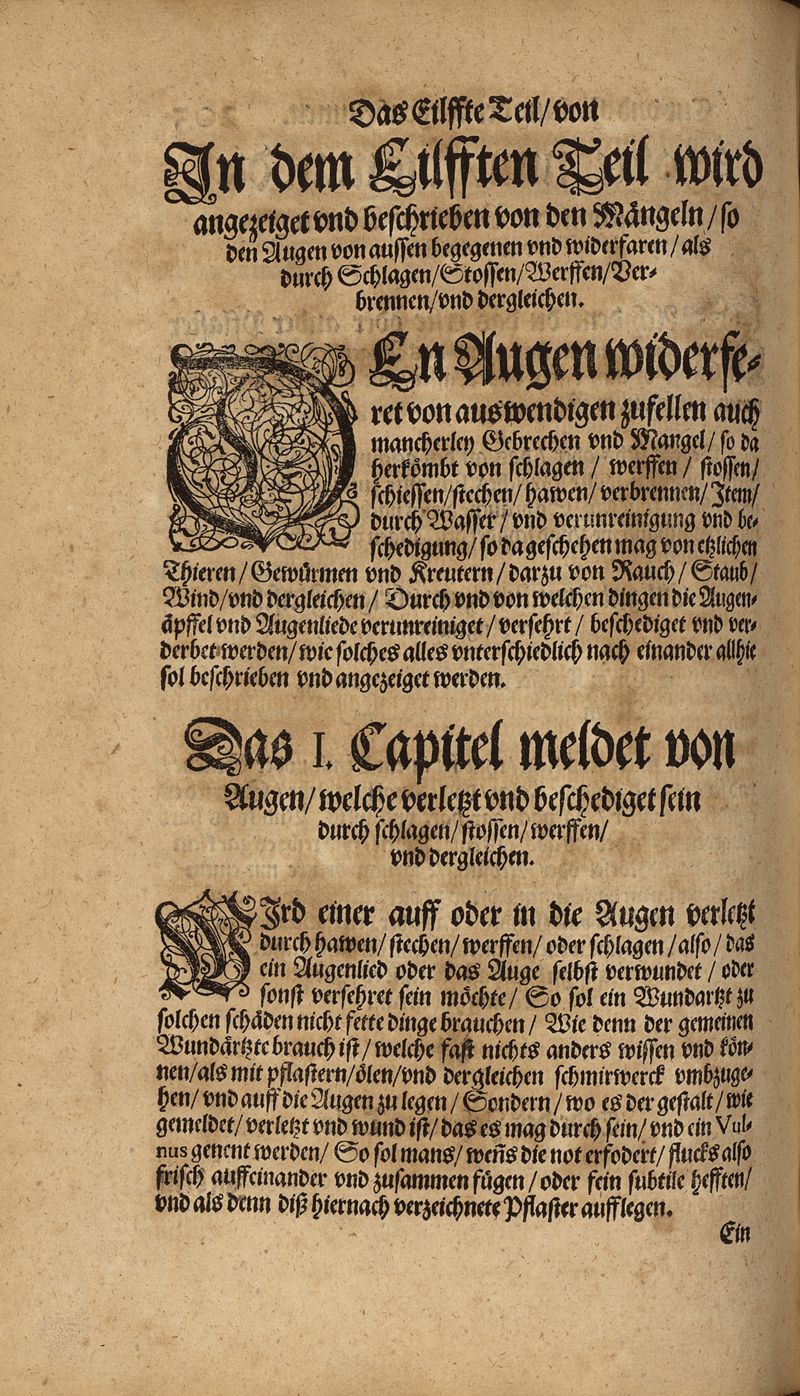 Das Eilffte Teil/von
In dem Eilfften Teil wird
angezeiget vnd beschrieben von den Mängeln/so
den Augen von aussen begegenen vnd widerfaren/als
durch Schlagen/Stossen/Werffen/Ver-
brennen/vnd dergleichen.
DEn Augen widerfe-
ret von auswendigen zufellen auch
mancherley Gebrechen vnd Mangel/ so da
herkömbt von schlagen / werffen / stossen/
schiessen/stechen/ hawen/ verbrennen/ Item/
durch Wasser/ vnd verunreinigung vnd be-
schedigung/ so da geschehen mag von etzlichen
Thieren/ Gewürmen vnd Kreutern/ darzu von Rauch/ Staub/
Wind/vnd dergleichen/ Durch vnd von welchen dingen die Augen-
äpffel vnd Augenliede verunreiniget/ versehrt/ beschediget vnd ver-
derbet werden/ wie solches alles vnterschiedlich nach einander allhie
sol beschrieben vnd angezeiget werden.
Das I. Capitel meldet von
Augen/welche verletzt vnd beschediget sein
durch schlagen/stossen/werffen/
vnd dergleichen.
WIrd einer auff oder in die Augen verletzt
durch hawen/ stechen/ werffen/ oder schlagen/also/ das
ein Augenlied oder das Auge selbst verwundet / oder
sonst versehret sein möchte/ So sol ein Wundartzt zu
solchen schäden nicht fette dinge brauchen/ Wie denn der gemeinen
Wundärtzte brauch ist/ welche fast nichts anders wissen vnd kön-
nen/als mit pflastern/ölen/vnd dergleichen schmirwerck vmbzuge-
hen/ vnd auff die Augen zu legen/ Sondern/ wo es der gestalt/ wie
gemeldet/ verletzt vnd wund ist/ das es mag durch sein/ vnd ein Vul-
nus genent werden/ So sol mans/ weñs die not erfodert/ flucks also
frisch auffeinander vnd zusammen fügen/ oder fein subtile hefften/
vnd als denn diß hiernach verzeichnete Pflaster aufflegen.
Ein